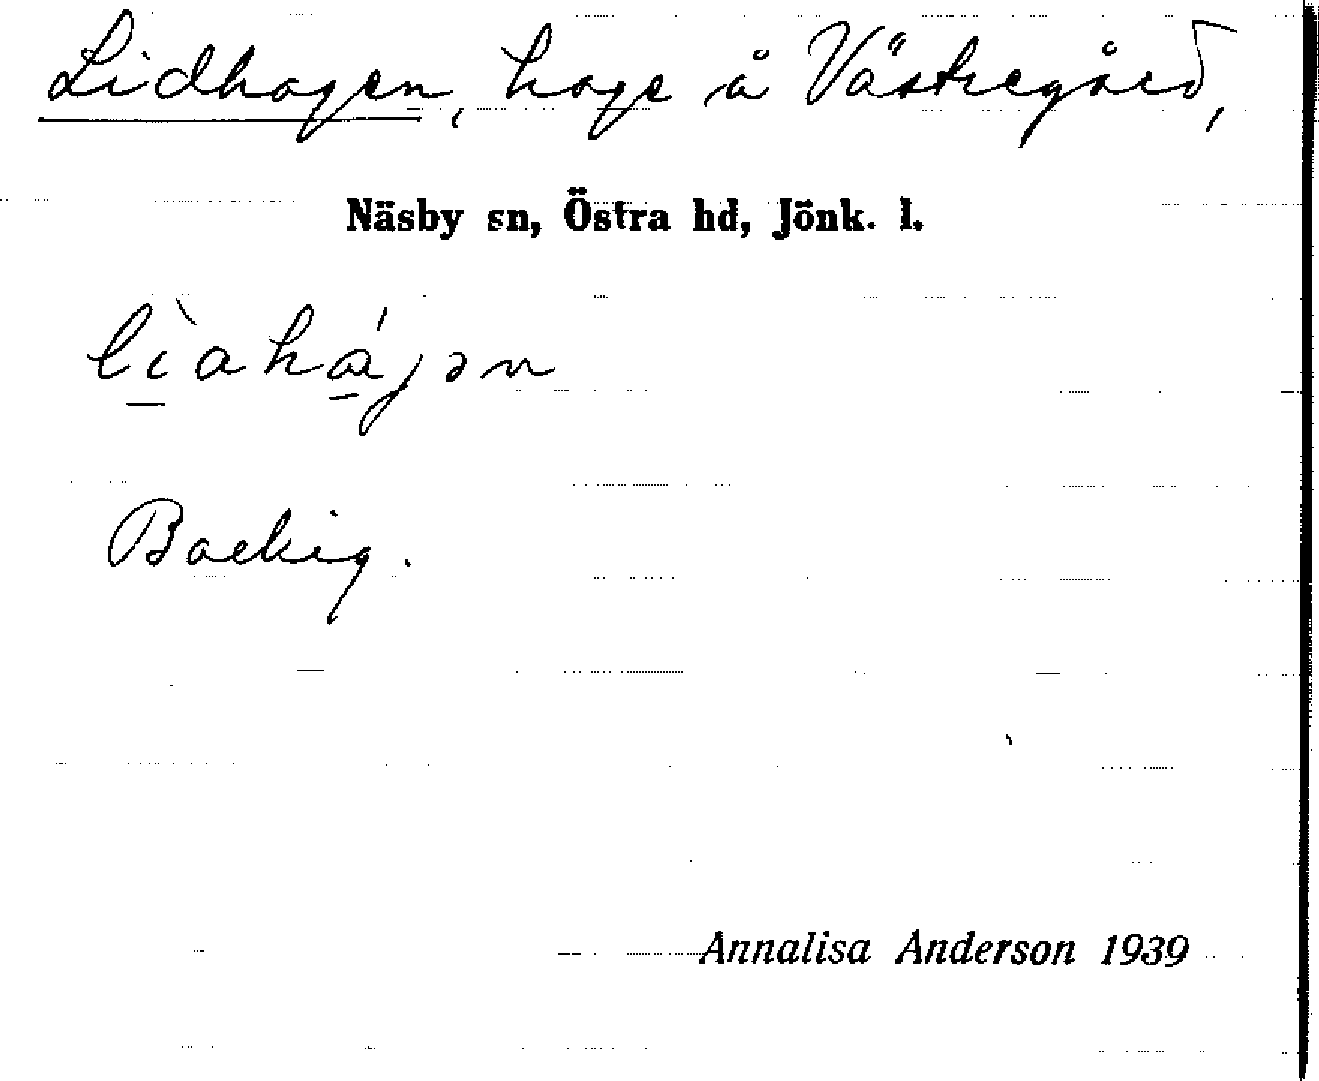 Lidhagen, hage å Västregård,
Näsby sn, Östra hd, Jönk. l.
lìahájən
Backig.
Annalisa Anderson 1939